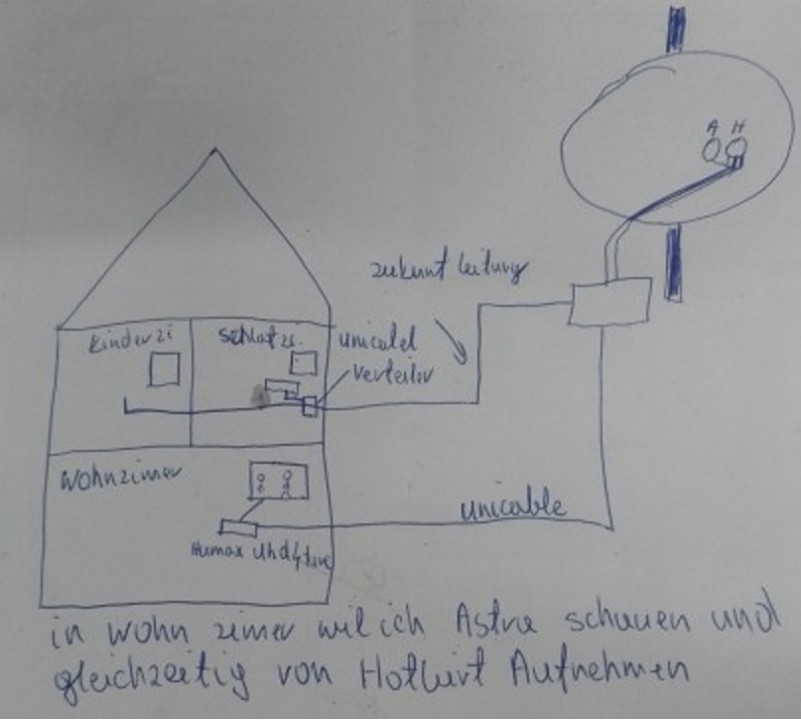 A H
zukunt leitung
Kinderzi
Schlafzi.
unicabel
Verteiler
Wohnzimer
unicable
Humax Uhd4tune
in wohn zimer wil ich Astra schauen und
gleichzeitig von Hotbirt Aufnehmen